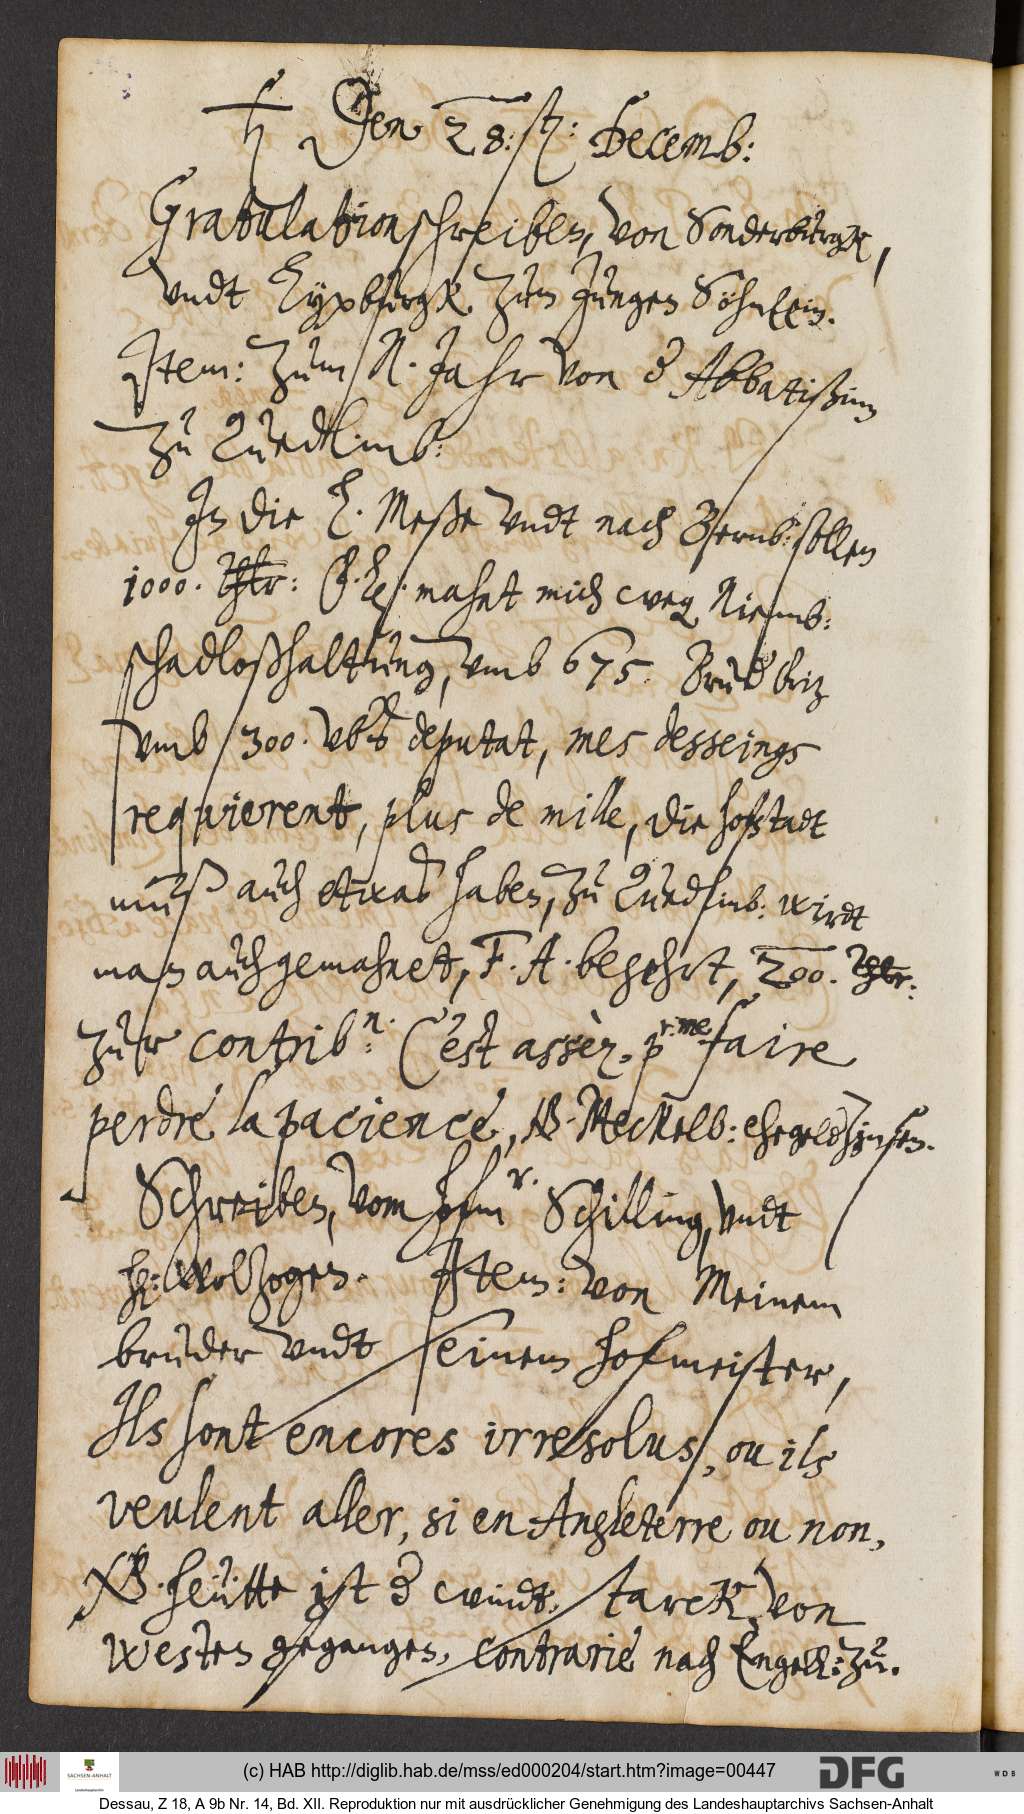 ♄ Den 28: st: Decemb:
Gratulationschreiben, von Sonderburgk,
vndt Lüxburgk zum Jungen Söhnlein.
Jtem: zum N. Jahr von d Abbatißinn
zu Quedlinb:
Jn die L. Meße vndt nach Bernb: sollen
1000. Thlr: mahnt mich weg Niemb:
schadloßhaltung, vmb 675. Brud
vmb 300. deputat, mes desseings
requierent, plus de mille, die hofstadt
muß auch etwas haben, zu Quedlinb: wirdt
man auch gemahnet, F. A. begehrt, 200. Thlr:
zur contrib:n. C'est assèz. pr. me faire
perdre la pacience, NB. Meckelb: ehegeldtzinsen.
Schreiben, vom hofmr. Schilling, vndt
H: Wolzogen. Jtem: von Meinem
bruder vndt seinem hofmeister,
Ils sont encores irresolus, ou ils
veulent aller, si en Angleterre ou non,
NB. heutte ist d windt, starck von
westen gegangen, contrarie nach Engell: zu.
(c) HAB http://diglib.hab.de/mss/ed000204/start.htm?image=00447
SACHSEN-ANHALT
DFG
WDB
Dessau, Z 18, A 9b Nr. 14, Bd. XII. Reproduktion nur mit ausdrücklicher Genehmigung des Landeshauptarchivs Sachsen-Anhalt